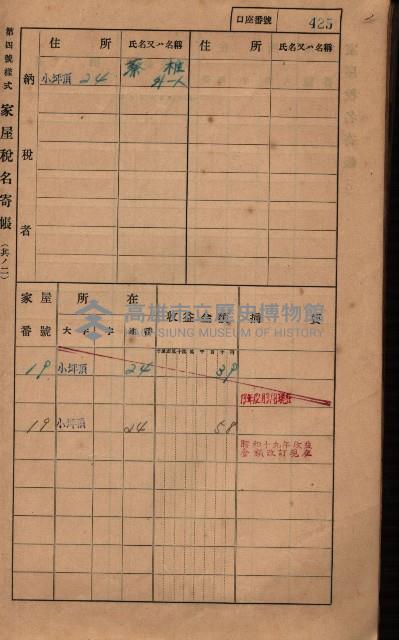 口座番號 425
第四號樣式 家屋稅名寄帳 (其ノ二)
住所 氏名又ハ名稱 住所 氏名又ハ名稱
納稅者
小坪頂 24 蔡
外一人
家屋番號 所在 收益金額 摘要
大字 字 地番
19 小坪頂 24 39
19 小坪頂 24 58
昭和十九年收益
金額改訂現在
高雄市立歷史博物館
KAOHSIUNG MUSEUM OF HISTORY